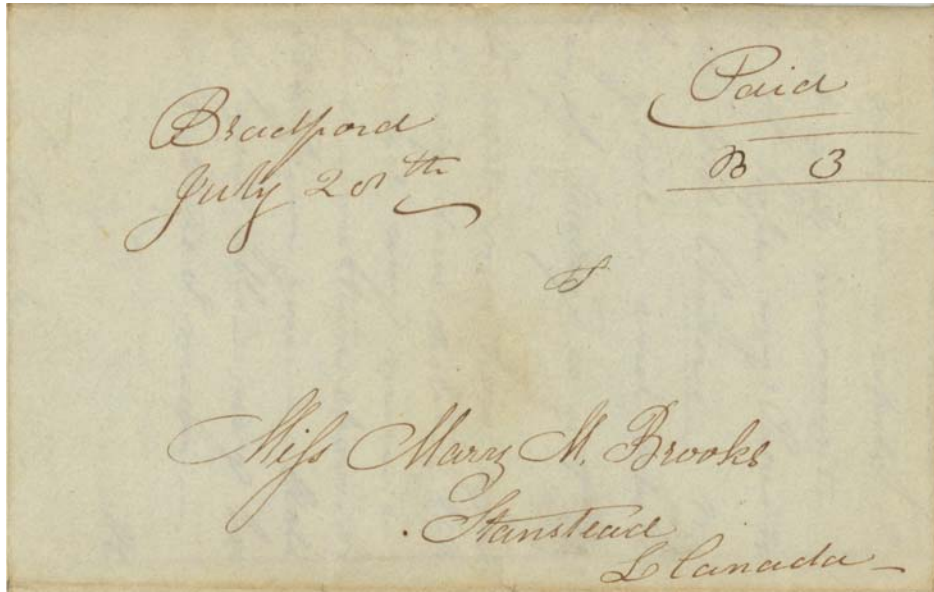 Paid
Bradford
July 28th
B 3
Miss Mary M. Brooks
Stanstead
L Canada